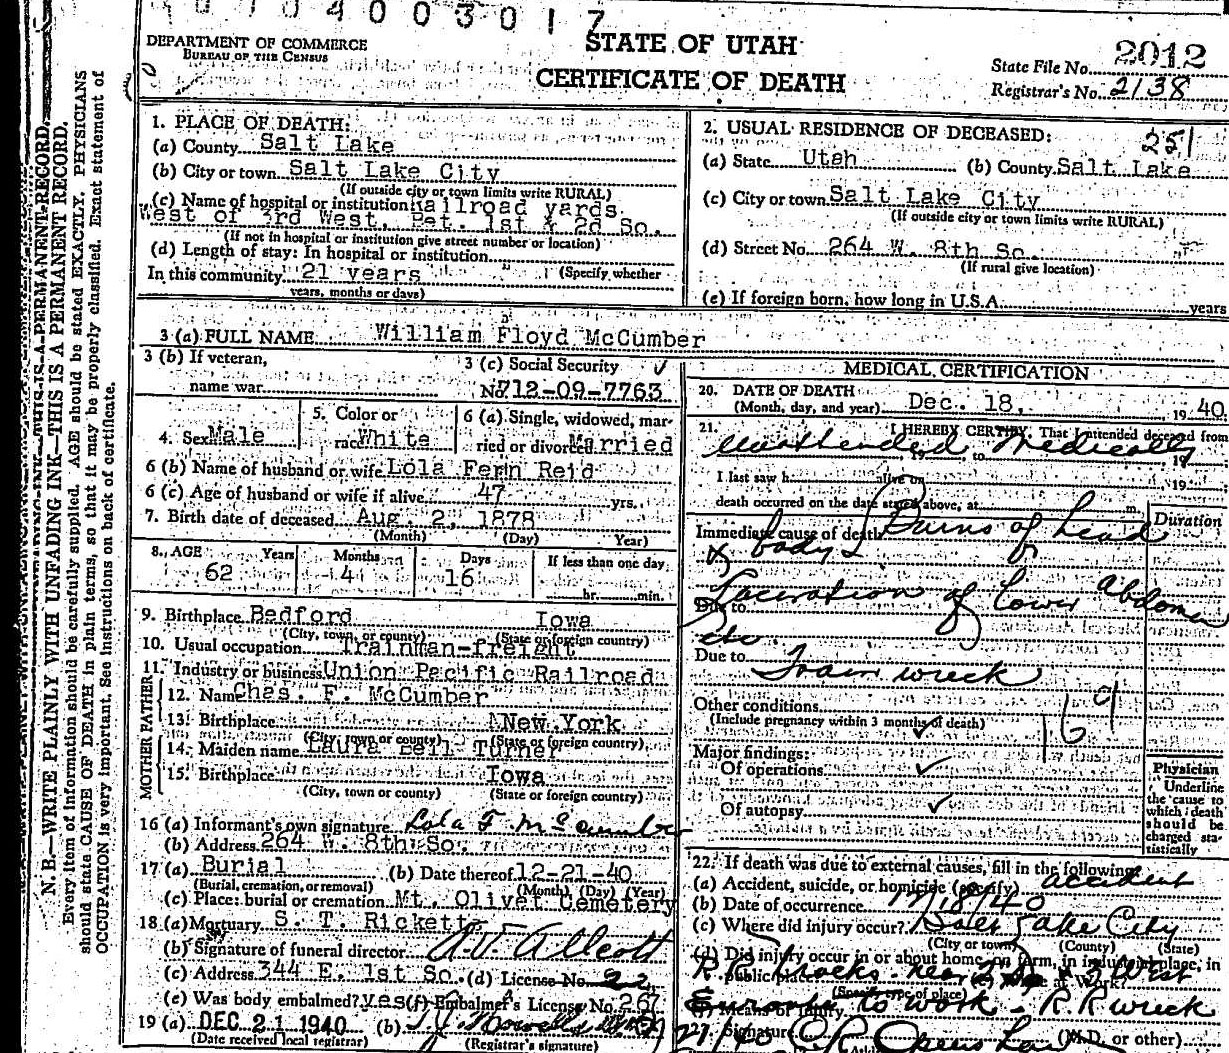 4 0 0 3 0 1 7
DEPARTMENT OF COMMERCE
BUREAU OF THE CENSUS
STATE OF UTAH
CERTIFICATE OF DEATH
2012
State File No.
Registrar's No. 2138
N. B.—WRITE PLAINLY WITH UNFADING INK—THIS IS A PERMANENT RECORD.
Every item of information should be carefully supplied. AGE should be stated EXACTLY. PHYSICIANS
should state CAUSE OF DEATH in plain terms, so that it may be properly classified. Exact statement of
OCCUPATION is very important. See instructions on back of certificate.
1. PLACE OF DEATH:
(a) County Salt Lake
(b) City or town Salt Lake City
(If outside city or town limits write RURAL)
(c) Name of hospital or institution: Railroad yards
West of 3rd West, Bet. 1st & 2d So.
(If not in hospital or institution give street number or location)
(d) Length of stay: In hospital or institution
In this community 21 years (Specify whether
years, months or days)
2. USUAL RESIDENCE OF DECEASED: 251
(a) State Utah (b) County Salt Lake
(c) City or town Salt Lake City
(If outside city or town limits write RURAL)
(d) Street No. 264 W. 8th So.
(If rural give location)
(e) If foreign born, how long in U.S.A. years
3 (a) FULL NAME William Floyd McCumber
3 (b) If veteran,
name war
3 (c) Social Security
No. 712-09-7763
4. Sex Male
5. Color or
race White
6 (a) Single, widowed, mar-
ried or divorced Married
6 (b) Name of husband or wife Lola Fern Reid
6 (c) Age of husband or wife if alive 47 yrs.
7. Birth date of deceased Aug. 2, 1878
(Month) (Day) Year)
8. AGE Years Months Days If less than one day
62 4 16 hr. min.
9. Birthplace Bedford Iowa
(City, town, or county) (State or foreign country)
10. Usual occupation Trainman-freight
11. Industry or business Union Pacific Railroad
FATHER
12. Name Chas. F. McCumber
13. Birthplace New York
(City, town or county) (State or foreign country)
MOTHER
14. Maiden name Laura Bell Turner
15. Birthplace Iowa
(City, town or county) (State or foreign country)
16 (a) Informant's own signature Lola F. McCumber
(b) Address 264 W. 8th So.
17 (a) Burial (b) Date thereof 12-21-40
(Burial, cremation, or removal) (Month) (Day) (Year)
(c) Place: burial or cremation Mt. Olivet Cemetery
18 (a) Mortuary S. T. Ricketts
(b) Signature of funeral director
(c) Address 344 E. 1st So. (d) License No. 22
(e) Was body embalmed? yes (f) Embalmer's License No. 267
19 (a) DEC 21 1940 (b)
(Date received local registrar) (Registrar's signature)
MEDICAL CERTIFICATION
20. DATE OF DEATH
(Month, day, and year) Dec. 18, 19 40
21. I HEREBY CERTIFY, That I attended deceased from
Unattended to Medically 19
I last saw h alive on 19
death occurred on the date stated above, at m.
Duration
Immediate cause of death Burns of head
& body &
Laceration of lower abdomen
Due to
etc
Due to Train wreck
Other conditions
(Include pregnancy within 3 months of death)
169
Major findings:
Of operations
Of autopsy
Physician
Underline
the cause to
which death
should be
charged sta-
tistically
22. If death was due to external causes, fill in the following:
(a) Accident, suicide, or homicide (specify) accident
(b) Date of occurrence 12/18/40
(c) Where did injury occur? Salt Lake City
(City or town) (County) (State)
(d) Did injury occur in or about home, on farm, in industrial place, in
public place? at work?
R R tracks near 3 West
(Specify type of place)
Enroute to work - R.R wreck
(e) Means of injury
Signature (M.D. or other)